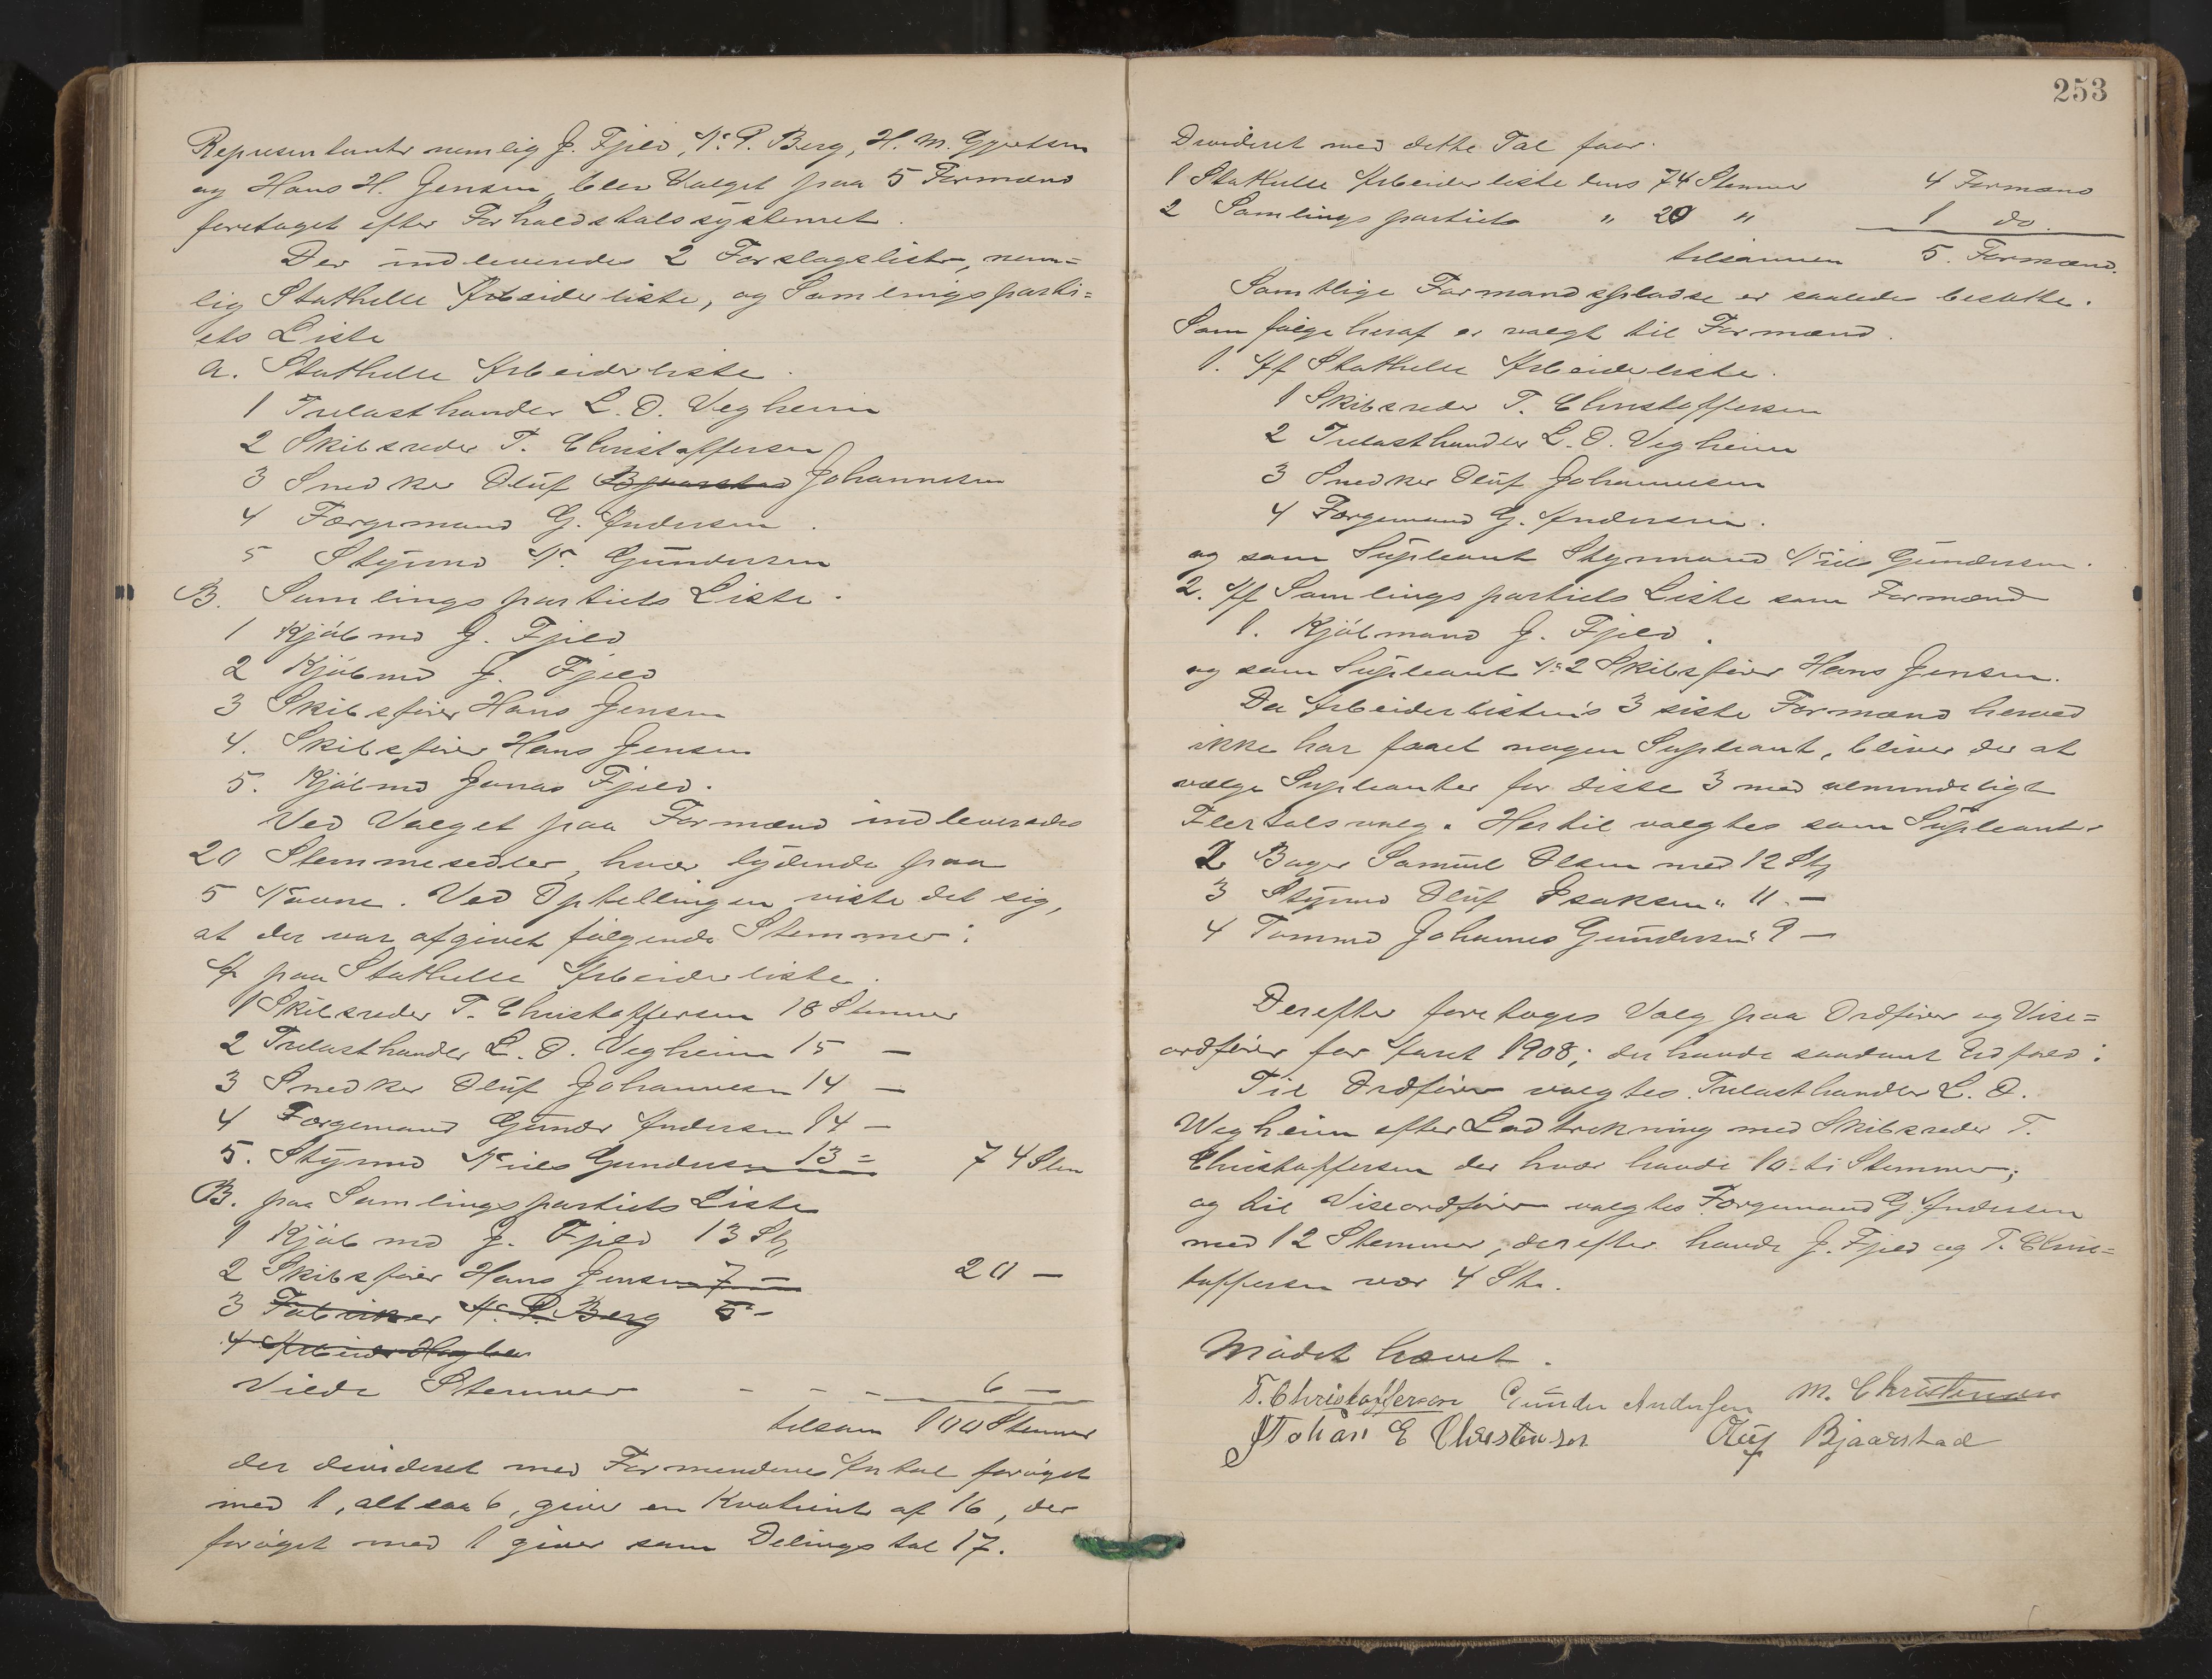 Representanter nemlig J. Fjeld, N. P. Berg, H. M. Gjertsen
og Hans H. Jensen, blev Valget paa 5 Formænd
foretaget efter Forholdstalssystemet.
Der indleveredes 2 Forslagslister, nem-
lig Stathelle Arbeiderliste, og Samlingsparti-
ets Liste
A. Stathelle Arbeiderliste.
1 Trelasthandler L. O. Vegheim
2 Skibsreder T. Christoffersen
3 Snedker Oluf Bjaarstad Johannesen
4 Færgemand G. Andersen.
5 Stymd N. Gundersen
B. Samlingspartiets Liste.
1 Kjøbmd J. Fjeld
2 Kjøbmd J. Fjeld
3 Skibsfører Hans Jensen
4. Skibsfører Hans Jensen
5. Kjøbmd Jonas Fjeld.
Ved Valget paa Formænd indleveredes
20 Stemmesedler, hver lydende paa
5 Navne. Ved Optellingen viste det sig,
at der var afgivet følgende Stemmer:
A paa Stathelle Arbeiderliste.
1 Skibsreder T. Christoffersen 18 Stemmer
2 Trelasthandler L. O. Vegheim 15 —
3 Snedker Oluf Johannesen 14 —
4 Færgemand Gunder Andersen 14 —
5. Stymd Niels Gundersen 13 = 74 Stm
B. paa Samlingspartiets Liste
1 Kjøbmd J. Fjeld 13 St,
2 Skibsfører Hans Jensen 7 — 20 —
3 Fabrikør N. P. Berg 5 -
4 Arbeider
Vilde Stemmer - - - 6 —
tilsam 100 Stemmer
der divideret med Formendenes Antal forøget
med 1, altsaa 6, giver en Kvotient af 16, der
forøget med 1 giver som Delingstal 17.
253
Divideret med dette Tal faar.
1 Stathelle Arbeiderliste dens 74 Stemmer 4 Formænd
2 Samlingspartiets " 20 " 1 do.
tilsammen 5. Formænd.
Samtlige Formandspladse er saaledes besatte.
Som følge heraf er valgt til Formænd.
1. Af Stathelle Arbeiderliste.
1 Skibsreder T. Christoffersen
2 Trelasthandler L. O. Vegheim
3 Snedker Oluf Johannesen
4 Færgemand G. Andersen.
og som Supleant Stymand Niels Gundersen.
2. Af Samlingspartiets Liste som Formænd
1. Kjøbmand J. Fjeld.
og som Supleant N: 2 Skibsfører Hans Jensen.
Da Arbeiderlisten's 3 siste Formænd herved
ikke har faaet nogen Supleant, bliver der at
vælge Supleanter for disse 3 med almindeligt
Flertalsvalg. Hertil valgtes som Supleanter
2 Bager Samuel Olsen med 12 St,
3 Stymd Oluf Isaksen " 11. —
4 Tømmd Johannes Gundersen " 9 —
Derefter foretoges Valg paa Ordfører og Vise-
ordfører for Aaret 1908; der havde saadant Udfald:
Til Ordfører valgtes Trelasthandler L. O.
Wegheim efter Lodtrekning med Skibsreder T.
Christoffersen der hver havde 10 - ti Stemmer;
og til Viseordfører valgtes Færgemand G. Andersen
med 12 Stemmer, derefter havde J. Fjeld og T. Chris-
toffersen vær 4 Str.
Mødet hævet.
T. Christoffersen Gunder Andersen M. Christensen
Johan E Christensen Oluf Bjaarstad